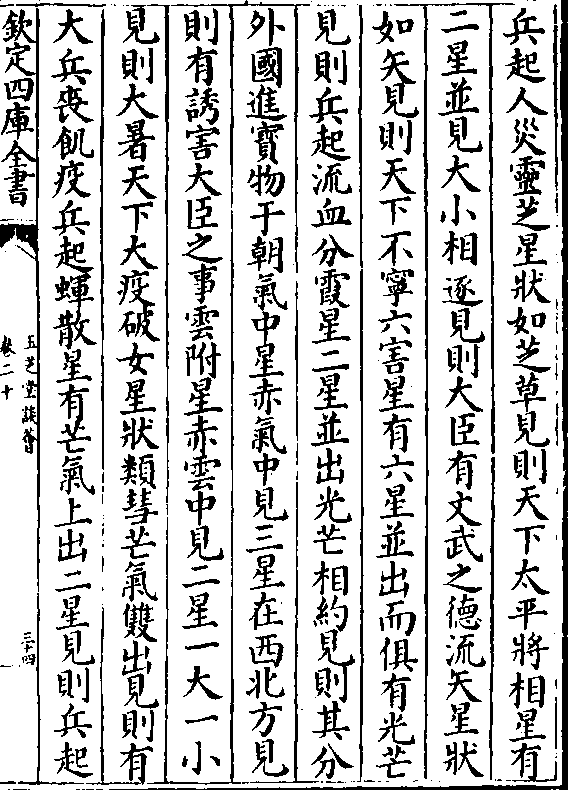 兵起人災靈芝星狀如芝草見則天下太平將相星有
二星並見大小相逐見則大臣有文武之德流矢星狀
如矢見則天下不寧六害星有六星並出而俱有光芒
見則兵起流血分霞星二星並出光芒相約見則其分
外國進寳物于朝氣中星赤氣中見三星在西北方見
則有誘害大臣之事雲附星赤雲中見二星一大一小
見則大暑天下大疫破女星狀類彗芒氣雙出見則有
大兵喪飢疫兵起蝉散星有芒氣上出二星見則兵起
欽定四庫全書
五芝堂談薈
卷二十
三十四